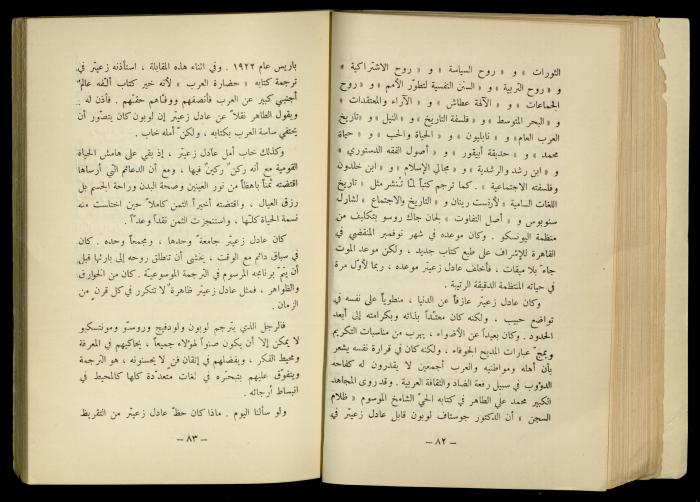 الثورات » و « روح السياسة » و « روح الاشتراكية »
و « روح التربية » و « السنن النفسية لتطوّر الأمم » و « روح
الجماعات » و « الآلهة عطاش » و « الآراء والمعتقدات »
و « البحر المتوسط » و « فلسفة التاريخ » و « النيل » و « تاريخ
العرب العام » و « نابليون » و « الحياة والحب » و « حياة
محمد » و « حديقة أبيقور » و « أصول الفقه الدستوري »
و « ابن رشد والرشدية » و « مجالي الإسلام » و « ابن خلدون
وفلسفته الاجتماعية » . كما ترجم كتباً لمّا تُنشر مثل « تاريخ
اللغات السامية » لأرنست رينان و « التاريخ والاجتماع » لشارل
سنوبوس و « أصل التفاوت » لجان جاك روسو بتكليف من
منظمة اليونسكو . وكان موعده في شهر نوفمبر المنقضي في
القاهرة للإشراف على طبع كتاب جديد ، ولكن موعد الموت
جاء بلا ميقات ، فأخلف عادل زعيتر موعده ، ربما لأول مرة
في حياته المنتظمة الدقيقة الرتيبة .
وكان عادل زعيتر عازفاً عن الدنيا ، منطوياً على نفسه في
تواضع حبيب ، ولكنه كان معتدّاً بذاته وبكرامته إلى أبعد
الحدود . وكان بعيداً عن الأضواء ، يهرب من مناسبات التكريم
ويمجّ عبارات المديح الجوفاء ، ولكنه كان في قرارة نفسه يشعر
بأن أهله ومواطنيه والعرب أجمعين لا يقدرون له كفاحه
الدؤوب في سبيل رفعة الضاد والثقافة العربية . وقد روى المجاهد
الكبير محمد علي الطاهر في كتابه الحيّ الشامخ الموسوم « ظلام
السجن » أن الدكتور جوستاف لوبون قابل عادل زعيتر في
— ٨٢ —
باريس عام ١٩٢٢ . وفي اثناء هذه المقابلة ، استأذنه زعيتر في
ترجمة كتابه « حضارة العرب » لأنه خير كتاب ألّفه عالمٌ
أجنبي كبير عن العرب فأنصفهم ووفّاهم حقّهم . فأذن له .
ويقول الطاهر نقلاً عن عادل زعيتر إن لوبون كان يتصوّر أن
يحتفي ساسة العرب بكتابه ، ولكنّ أمله خاب .
وكذلك خاب أمل عادل زعيتر ، إذ بقي على هامش الحياة
القومية مع أنه ركنٌ ركينٌ فيها ، ومع أن الدعائم التي أرساها
اقتضته ثمناً باهظاً من نور العينين وصحة البدن وراحة الجسم بل
رزق العيال ، واقتضته أخيراً الثمن كاملاً حين اختلست منه
نسمة الحياة كلّها ، واستنجزت الثمن نقداً وعدّاً .
كان عادل زعيتر جامعةً وحدها ، ومجمعاً وحده . كان
في سباق دائم مع الوقت ، يخشى أن تنطلق روحه إلى بارئها قبل
أن يتمّ برنامجه المرسوم في الترجمة الموسوعيّة . كان من الخوارق
والظواهر ، فمثل عادل زعيتر ظاهرةٌ لا تتكرر في كل قرن من
الزمان .
فالرجل الذي يترجم لوبون ولودفيج وروسّو ومونتسكيو
لا يمكن إلا أن يكون صنواً لهؤلاء جميعاً ، يحاكيهم في المعرفة
ومحيط الفكر ، ويفضلهم في إتقان فنٍ لا يحسنونه ، هو الترجمة
ويتفوّق عليهم بتبحّره في لغات متعدّدة كلها كالمحيط في
انبساط أرجائه .
ولو سألنا اليوم . ماذا كان حظّ عادل زعيتر من التقريظ
— ٨٣ —